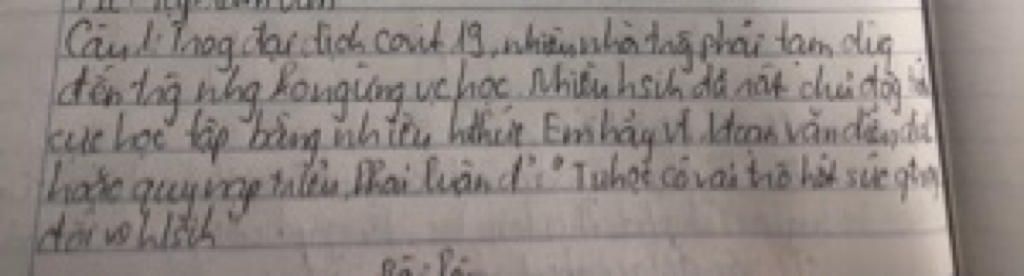 Câu 1: Trog đại dịch covit 19, nhiều nhà trg phải tạm dig
đến trg nhg ko ngừng vc học. Nhiều hsinh đã rất chủ độg
cực học tập bằng nhiều hthức Em hãy vt 1 đoạn văn diễn dịch
hoặc quy nạp triển khai luận đ: "Tự học có vai trò hết sức qtrọg
đối vs hsinh